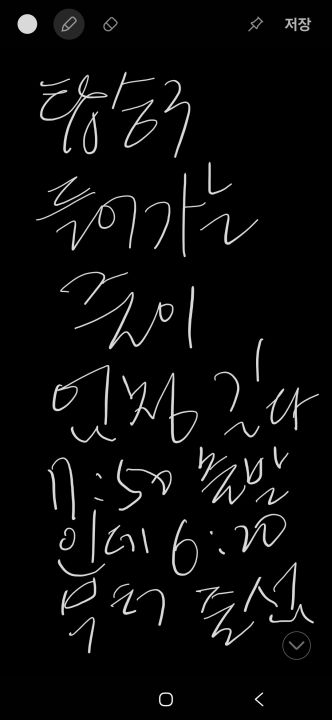 저장
탑승구
들어가는
줄이
엄청 길다
7:50 출발
인데 6:20
부터 줄선